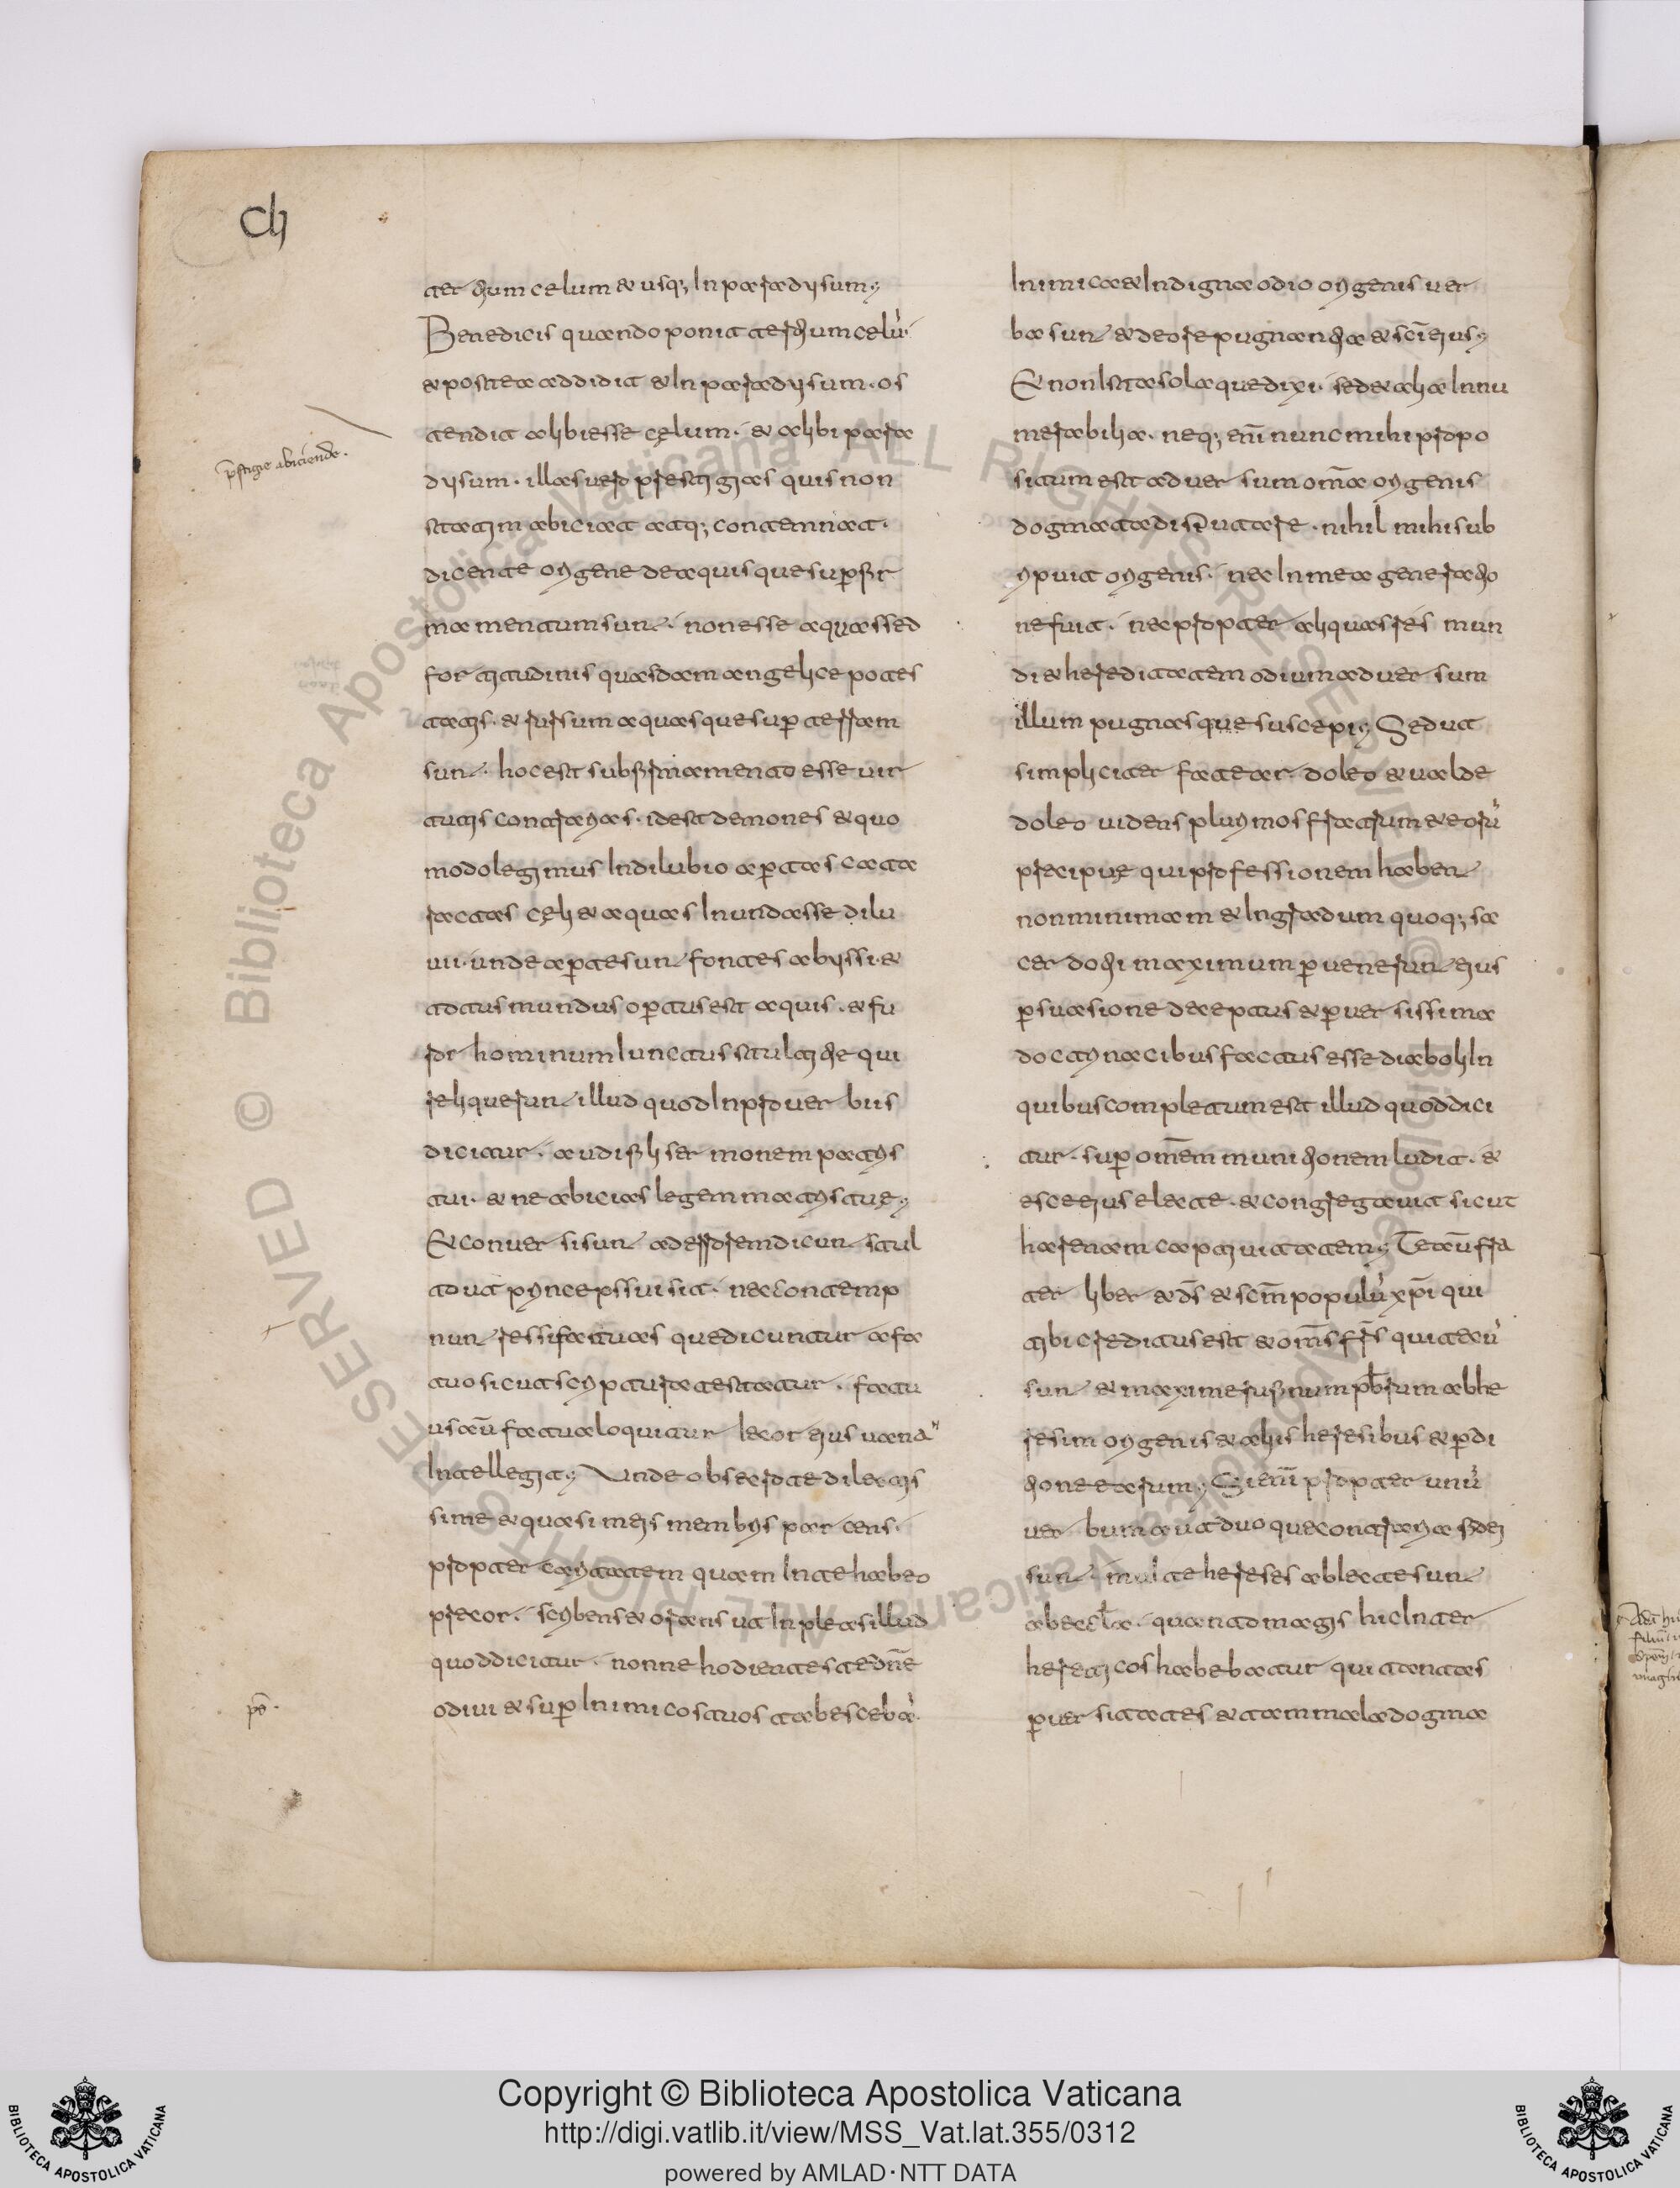 Ch
ter tium celum & usq; In paradysum;
Benedicis quando ponit tertium celũ.
& postea addidit & In paradysum. os
tendit alibi esse cęlum. & alibi para
dysum. illas uero prestigias quis non
statim abiciat atq; contemnat.
dicente origene de aquis que sup fir
mamentum sunt. non esse aquas sed
fortitudinis quasdam angelice potes
tatis. & rursum aquas que sup terram
sunt. hoc est sub firmamento esse uir
tutis contrarias. id est demones & quo
modo legimus In dilubio aptas cata
ractas cęli & aquas Inundasse dilu
uii. unde apte sunt fontes abyssi. &
totus mundus optus est aquis. & fu
ror hominum Iunctus stultitie qui
reliquerunt illud quod In prouerbiis
dicitur. audi fili sermonem patris
tui. & ne abicias legem matris tuę;
Et conuersi sunt ad errorem dicunt stul
to ut princeps sui sit. nec contemp
nunt res si fatuas que dicuntur a fa
tuo sicut scriptura testatur. fatu
us aũ fatua loquitur & cor eius uana
Intellegit; Unde obsecro te dilectis
sime & quasi meis membris parcens.
propter caritatem quam In te habeo
precor. scribens & orans ut Inpleas illud
quod dicitur. nonne hodientes te dñe
odiui & sup Inimicos tuos tabescebã.
p̃stigie abiciende.
pŝ.
Inimica & Indigna odio origenis uer
ba sunt & deo repugnantia & scĩs eius;
Et non Ista sola que dixi. sed & alia Innu
merabilia. neq; enĩ nunc mihi propo
situm est aduersum oma origenis
dogmata disputare. nihil mihi sub
ripuit origenis. nec In mea generatio
ne fuit. nec propter aliquas res mun
di & hereditatem odium aduersum
illum pugnasque suscepi; Sed ut
simpliciter fatear doleo & ualde
doleo uidens plurimos fratrum & eorũ
precipuę qui professionem habent
non minimam & In gradum quoq; sa
cerdotii maximum puenerunt eius
psuasione deceptus & puersissima
doctrina cibus factus esse diaboli In
quibus completum est illud quod dici
tur. sup omẽm munitionem ludit. &
esce eius electe. & congregauit sicut
harenam captiuitatem; Te aũ fra
ter liber & dŝ & scm̃ populũ xp̃i qui
tibi creditus est & oms̃ frs̃ qui tecũ
sunt & maxime rufinum pbr̃um ab he
resim origenis & aliis heresibus & pdi
tione earum; Si enĩ propter unũ
uerbum aut duo que contraria fidei
sunt. multe hereses abiecte sunt
ab eccla. quanto magis hic Inter
hereticos habebatur qui tantas
puersitates & tam mala dogma
Copyright © Biblioteca Apostolica Vaticana
http://digi.vatlib.it/view/MSS_Vat.lat.355/0312
powered by AMLAD·NTT DATA
BIBLIOTECA APOSTOLICA VATICANA
BIBLIOTECA APOSTOLICA VATICANA